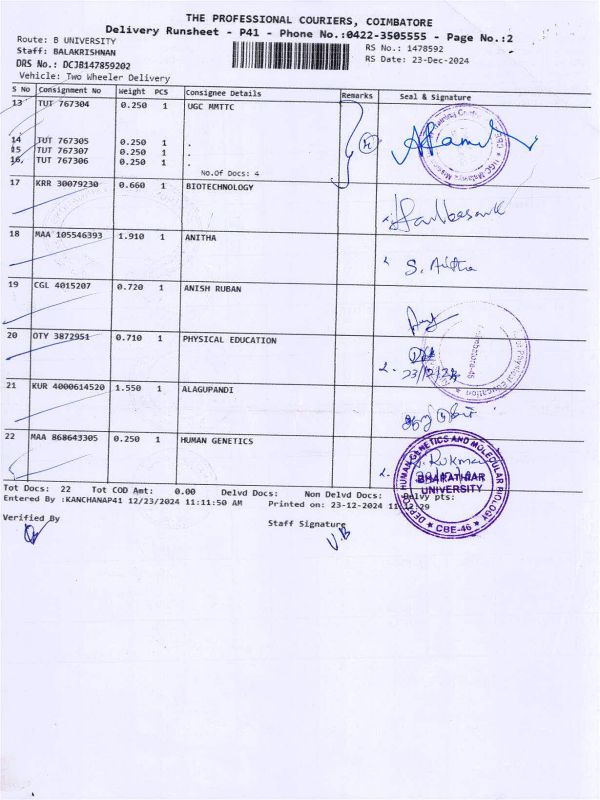 THE PROFESSIONAL COURIERS, COIMBATORE
Delivery Runsheet - P41 - Phone No.:0422-3505555 - Page No.:2
Route: B UNIVERSITY
RS No.: 1478592
Staff: BALAKRISHNAN
RS Date: 23-Dec-2024
DRS No.: DCJB147859202
Vehicle: Two Wheeler Delivery
S No Consignment No Weight PCS Consignee Details Remarks Seal & Signature
13 TUT 767304 0.250 1 UGC MMTTC
14 TUT 767305 0.250 1 .
15 TUT 767307 0.250 1 .
16 TUT 767306 0.250 1 .
No.Of Docs: 4
17 KRR 30079230 0.660 1 BIOTECHNOLOGY
18 MAA 105546393 1.910 1 ANITHA
S. Anitha
19 CGL 4015207 0.720 1 ANISH RUBAN
20 OTY 3872951 0.710 1 PHYSICAL EDUCATION
23/12/24
21 KUR 4000614520 1.550 1 ALAGUPANDI
22 MAA 868643305 0.250 1 HUMAN GENETICS
DEPT. OF HUMAN GENETICS AND MOLECULAR BIOLOGY
BHARATHIAR
UNIVERSITY
CBE-46
Tot Docs: 22 Tot COD Amt: 0.00 Delvd Docs: Non Delvd Docs: Delvy pts:
Entered By :KANCHANAP41 12/23/2024 11:11:50 AM Printed on: 23-12-2024 11:12:29
Verified By
Staff Signature
V.B